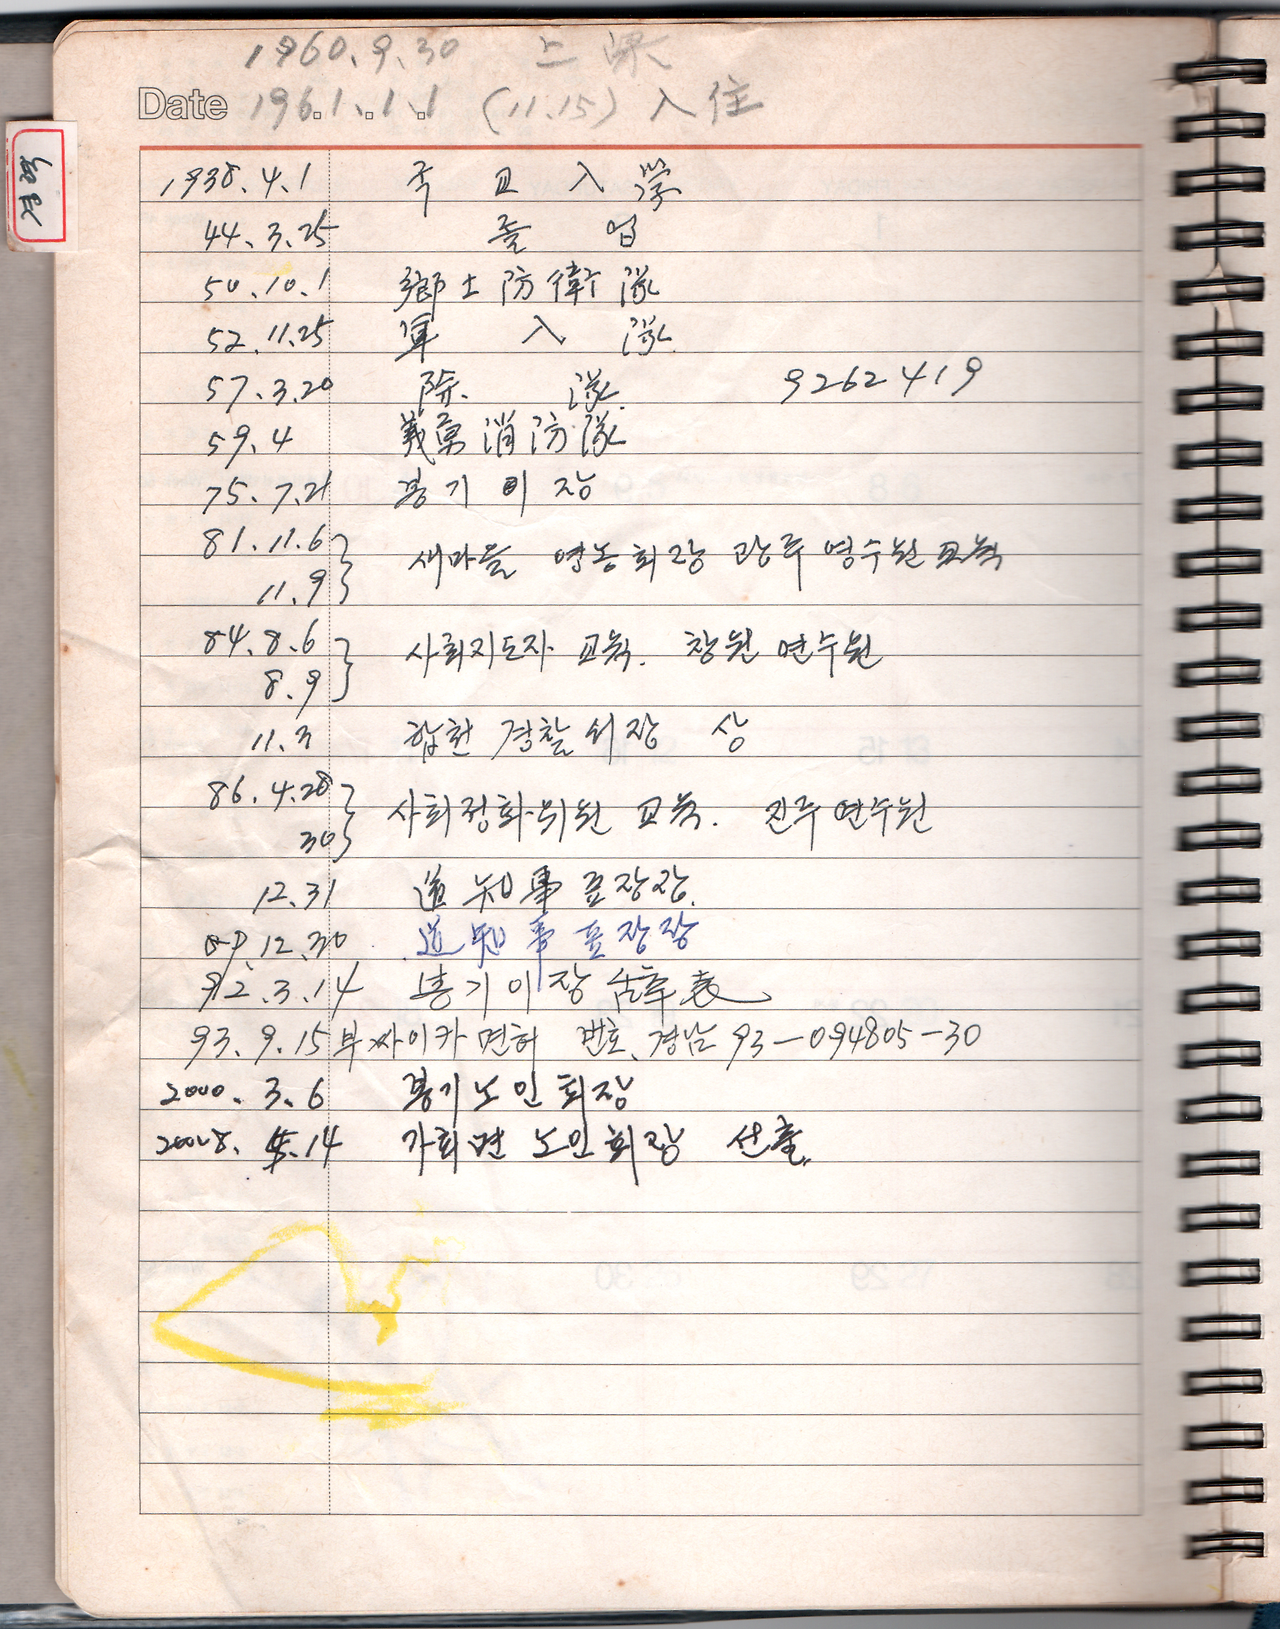 1960.9.30 上梁
Date 1961.1.1 (11.15) 入住
1938.4.1 국 교 入 學
44.3.25 졸 업
50.10.1 鄕土防衛隊
52.11.25 軍 入 隊
57.3.20 除. 隊. 9262419
59.4 義勇消防隊
75.7.21 봉기 이장
81.11.6
11.9 새마을 영농회장 광주 연수원 교육
84.8.6
8.9 사회지도자 교육. 창원 연수원
11.3 합천 경찰서장 상
86.4.28
30 사회정화위원 교육. 진주연수원
12.31 道知事표장장.
87.12.30 道知事표장장
92.3.14 봉기이장 辞表
93.9.15 부싸이카면허 번호. 경남 93-094805-30
2000.3.6 봉기노인회장
2008. 14 가회면 노인회장 선출.